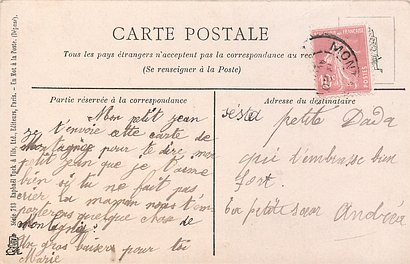 CARTE POSTALE
Tous les pays étrangers n'acceptent pas la correspondance au rec
(Se renseigner à la Poste)
MON
Partie réservée à la correspondance
Adresse du destinataire
Mon petit jean
je t'envoie cette carte de
montagnée pour te dire mon
petit jean que je t'aime
bien si tu ne fait pas
crier la maman nous t'em
porterons quelque chose de
montagnée
Un gros baisers pour toi
Marie
petite Dada
qui t'embrasse bien
fort.
ta petite sœur Andrée
Série 211 Raphaël Tuck & Fils, Ltd, Editeurs, Paris. - Un Mot à la Poste. (Dépose).